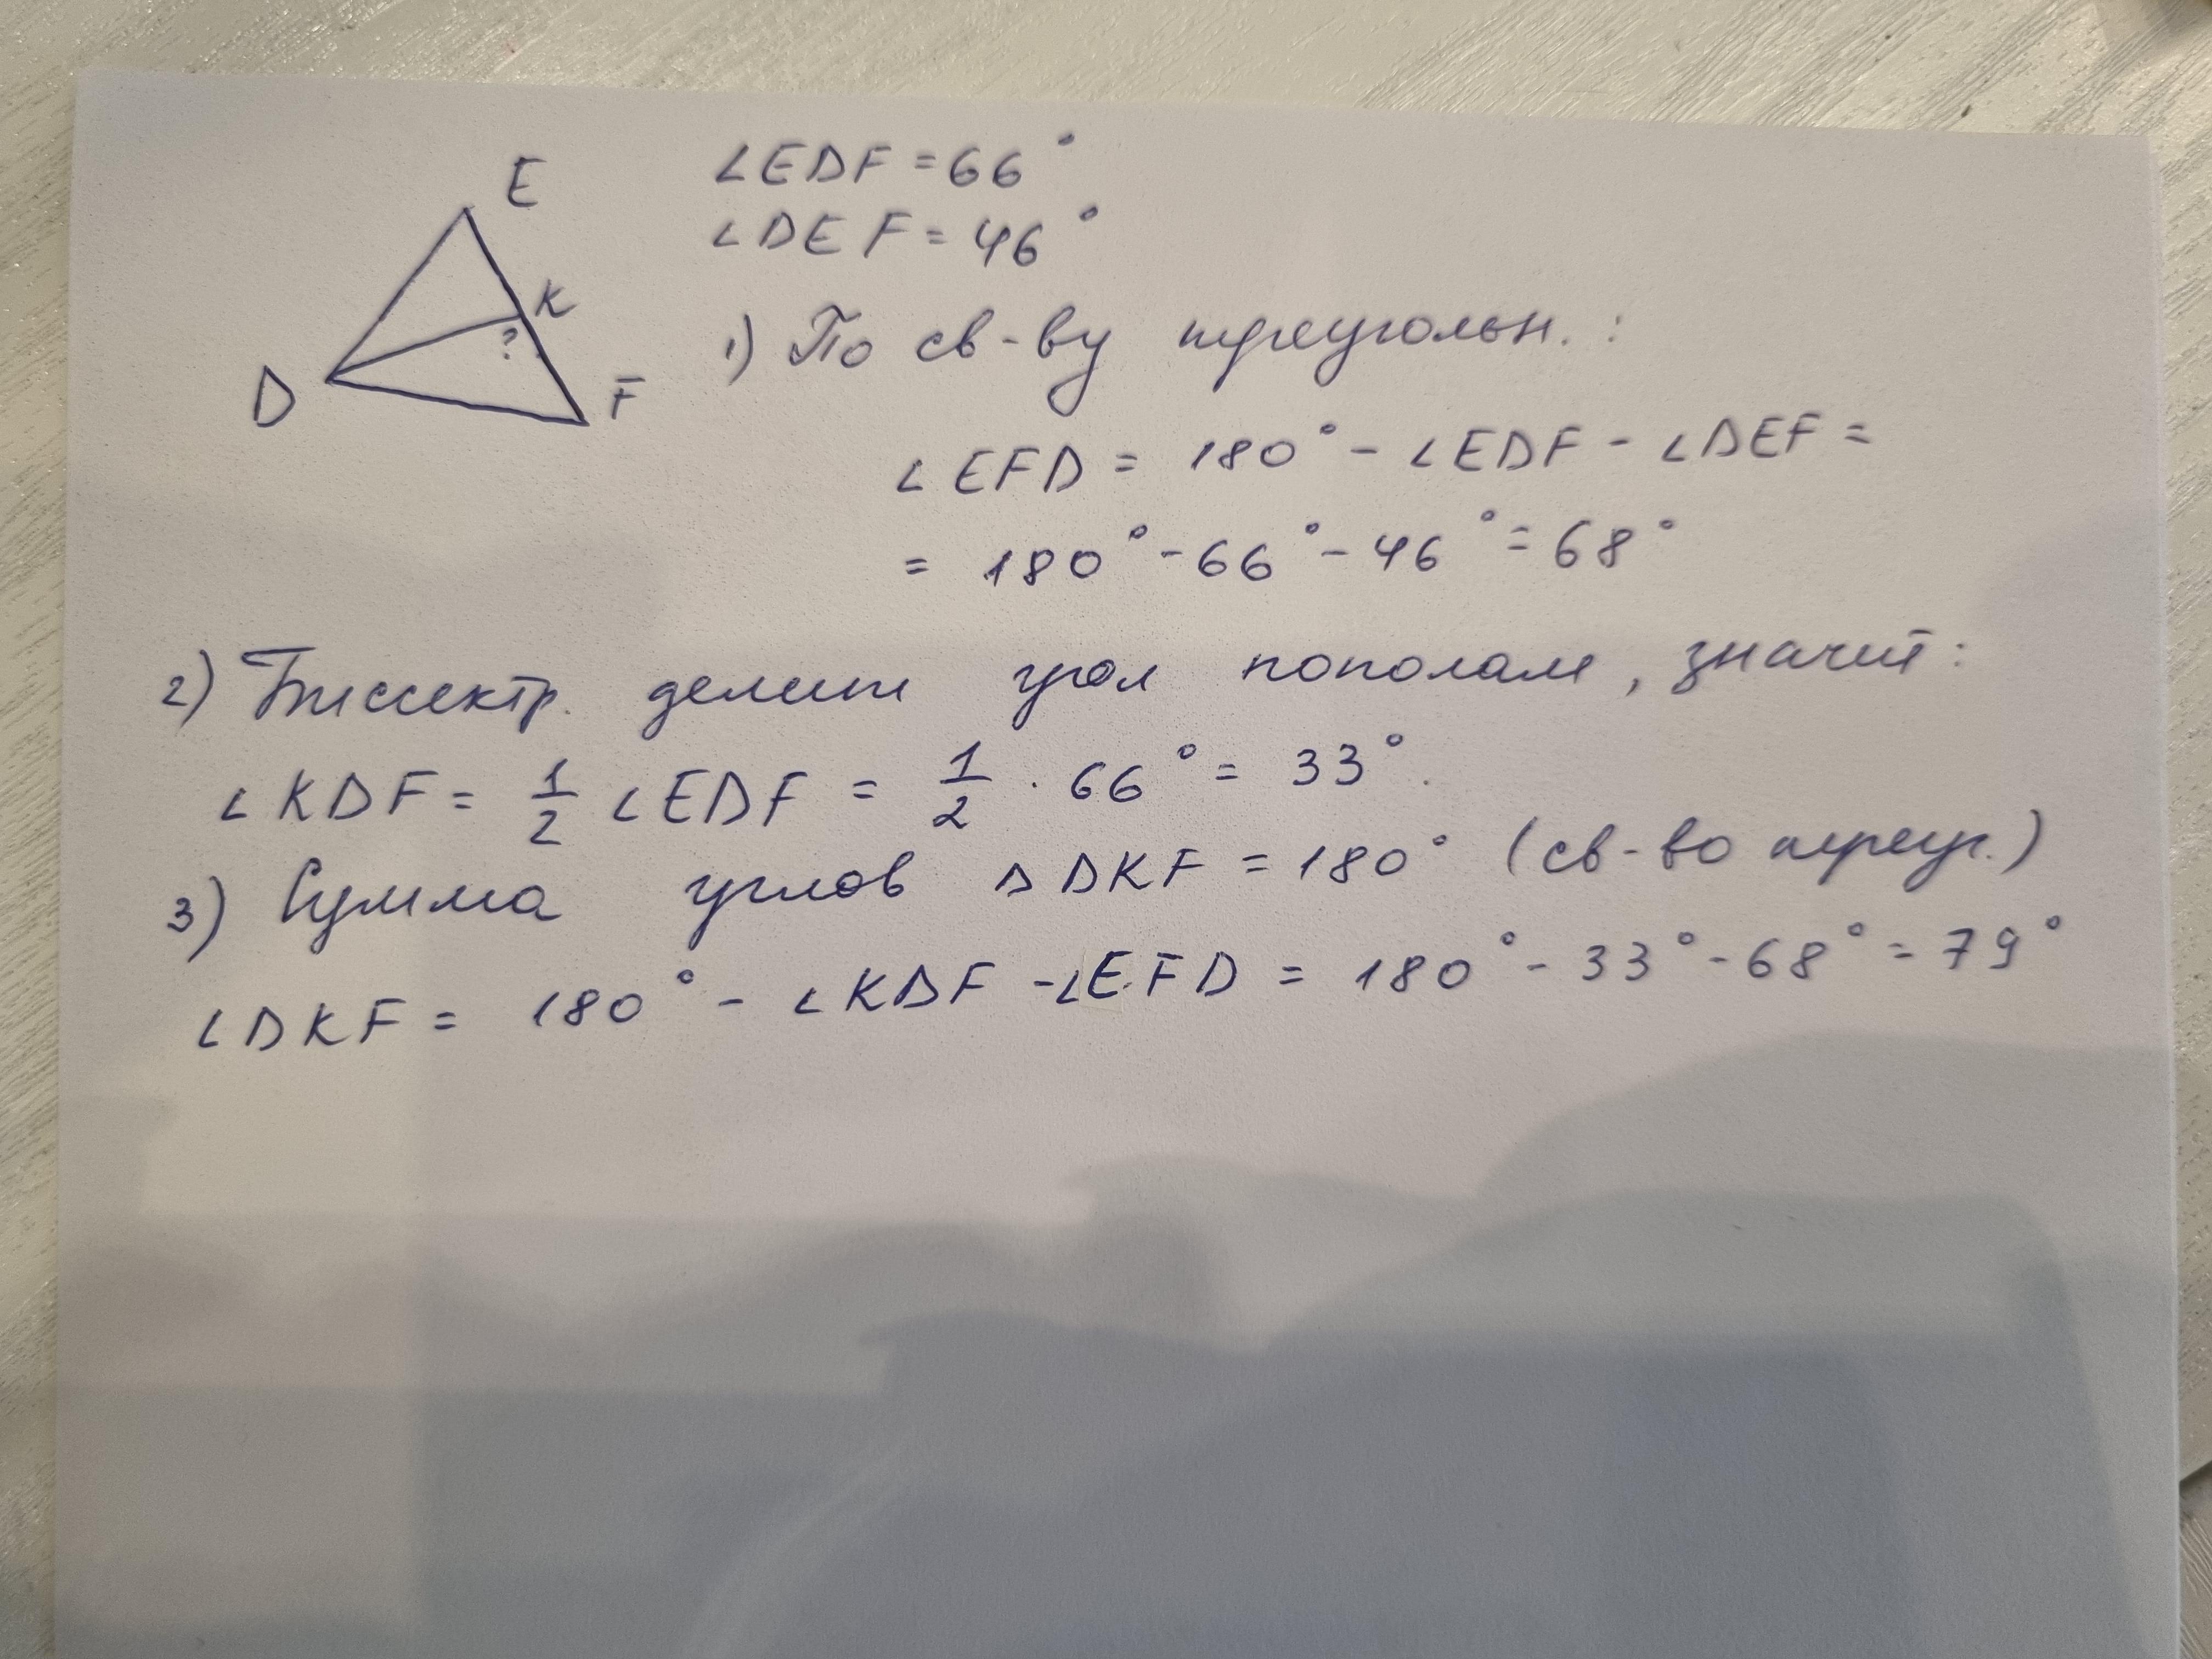 E
K
?
D
F
∠EDF = 66°
∠DEF = 46°
1) По св-ву треугольн. :
∠EFD = 180° - ∠EDF - ∠DEF =
= 180° - 66° - 46° = 68°
2) Биссектр. делит угол пополам, значит:
∠KDF = 1/2 ∠EDF = 1/2 · 66° = 33°.
3) Сумма углов △DKF = 180° (св-во треуг.)
∠DKF = 180° - ∠KDF - ∠EFD = 180° - 33° - 68° = 79°